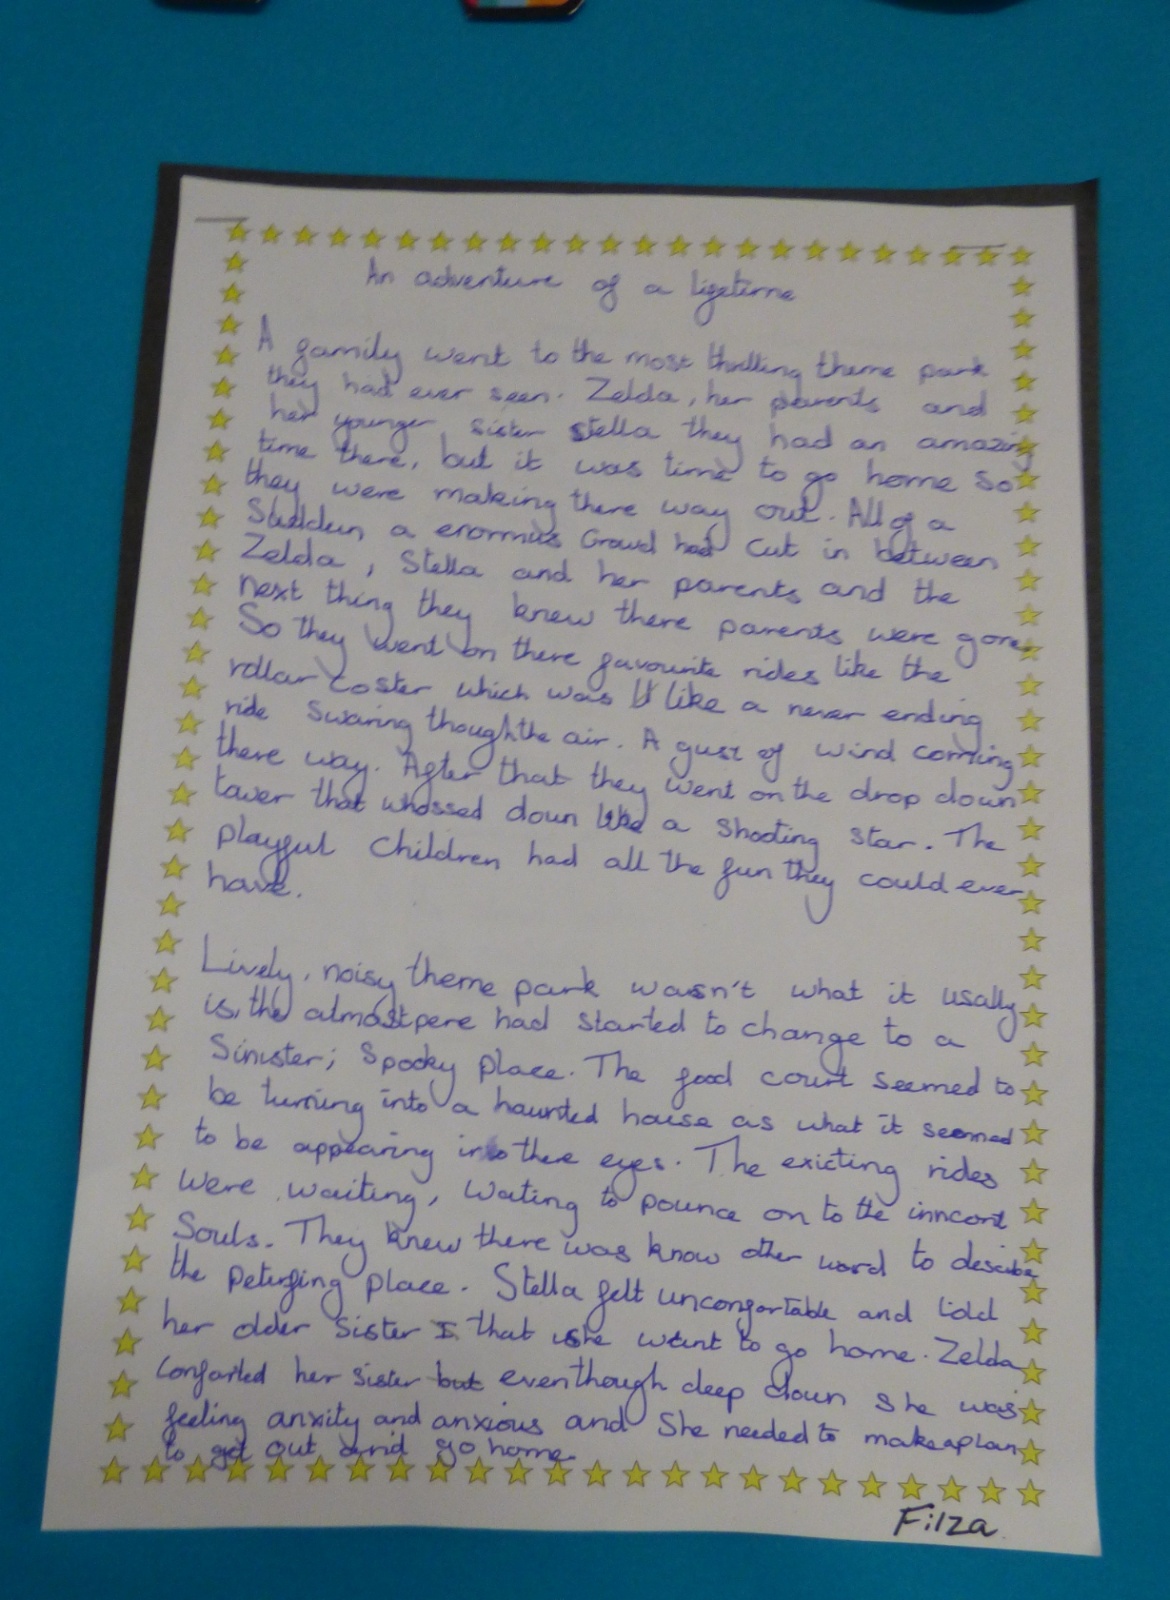 An adventure of a lifetime
A family went to the most thrilling theme park
they had ever seen. Zelda, her parents and
her younger sister Stella they had an amazing
time there, but it was time to go home so
they were making there way out. All of a
Suddun a enormus Crowd had cut in between
Zelda, Stella and her parents and the
next thing they knew there parents were gone.
So they went on there favourite rides like the
rollar coster which was like a never ending
ride swaring though the air. A gust of wind coming
there way. After that they went on the drop down
tower that whossed down like a shooting star. The
playful children had all the fun they could ever
have.
Lively, noisy theme park wasn't what it usally
is, the almostpere had started to change to a
Sinister; Spooky place. The food court seemed to
be turning into a haunted house as what it seemed
to be appearing into there eyes. The exicting rides
were waiting, wating to pounce on to the inncont
Souls. They knew there was know other word to descibe
the peturfing place. Stella felt unconfortable and told
her older sister that she want to go home. Zelda
Conforted her sister but eventhough deep down she was
feeling anxity and anxious and She needed to make a plan
to get out and go home.
Filza